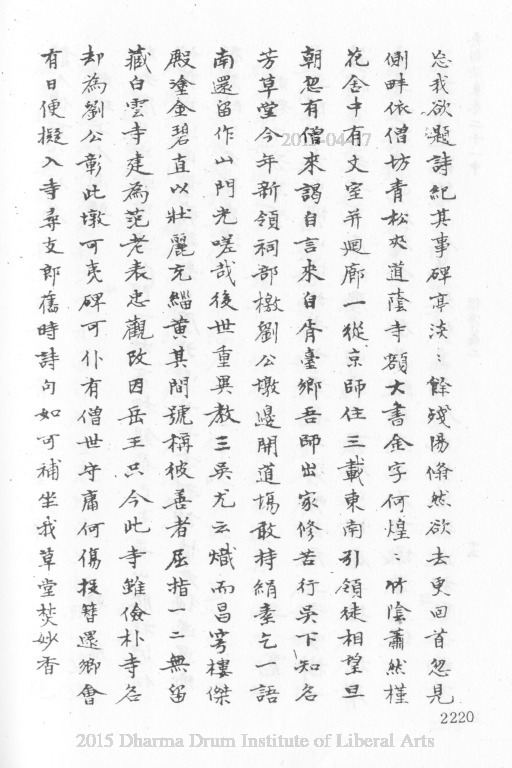 忘我欲題詩紀其事碑亭淡〻餘殘陽翛然欲去更回首忽見
側畔依僧坊青松夾道蔭寺額大書金字何煌〻竹陰蕭然槿
花舍中有文室并迴廊一從京師住三載東南引領徒相望旦
朝忽有僧來謁自言來自胥臺鄉吾師出家修苦行吳下知名
芳草堂今年新領祠部檄劉公墩邊開道場敢持絹素乞一語
南還留作山門光嗟哉後世重異教三吳尤云熾而昌穹樓傑
殿塗金碧直以壯麗充緇黃其間號稱彼善者屈指一二無留
藏白雲寺建為范老表忠觀改因岳王只今此寺雖儉朴寺名
却為劉公彰此墩可夷碑可仆有僧世守庸何傷投簪還鄉會
有日便擬入寺尋支郎舊時詩句如可補坐我草堂焚妙香
2220
2015 Dharma Drum Institute of Liberal Arts